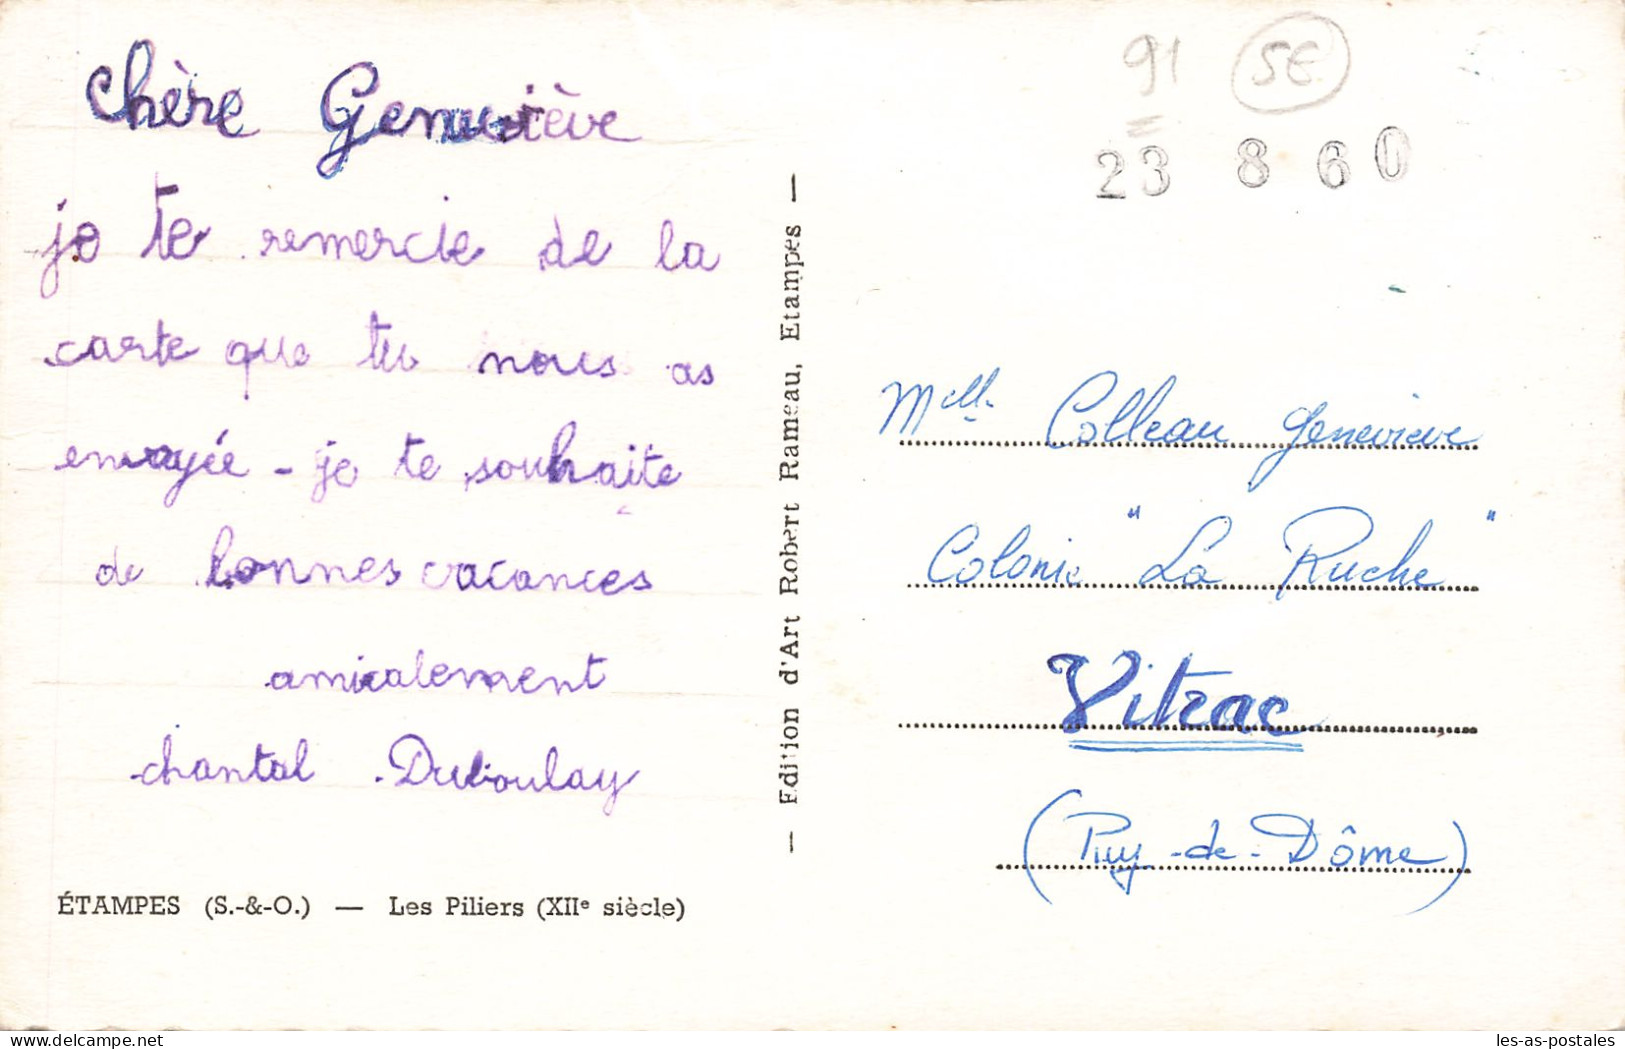 chère Geneviève
je te remercie de la
carte que tu nous as
envoyée - je te souhaite
de bonnes vacances
amicalement
chantal Duboulay
ÉTAMPES (S.-&-O.) — Les Piliers (XIIe siècle)
— Edition d'Art Robert Rameau, Etampes —
91 5E
23 8 60
Melle Colleau Geneviève
Colonie "La Ruche"
Vitrac
(Puy-de-Dôme)
les-as-postales